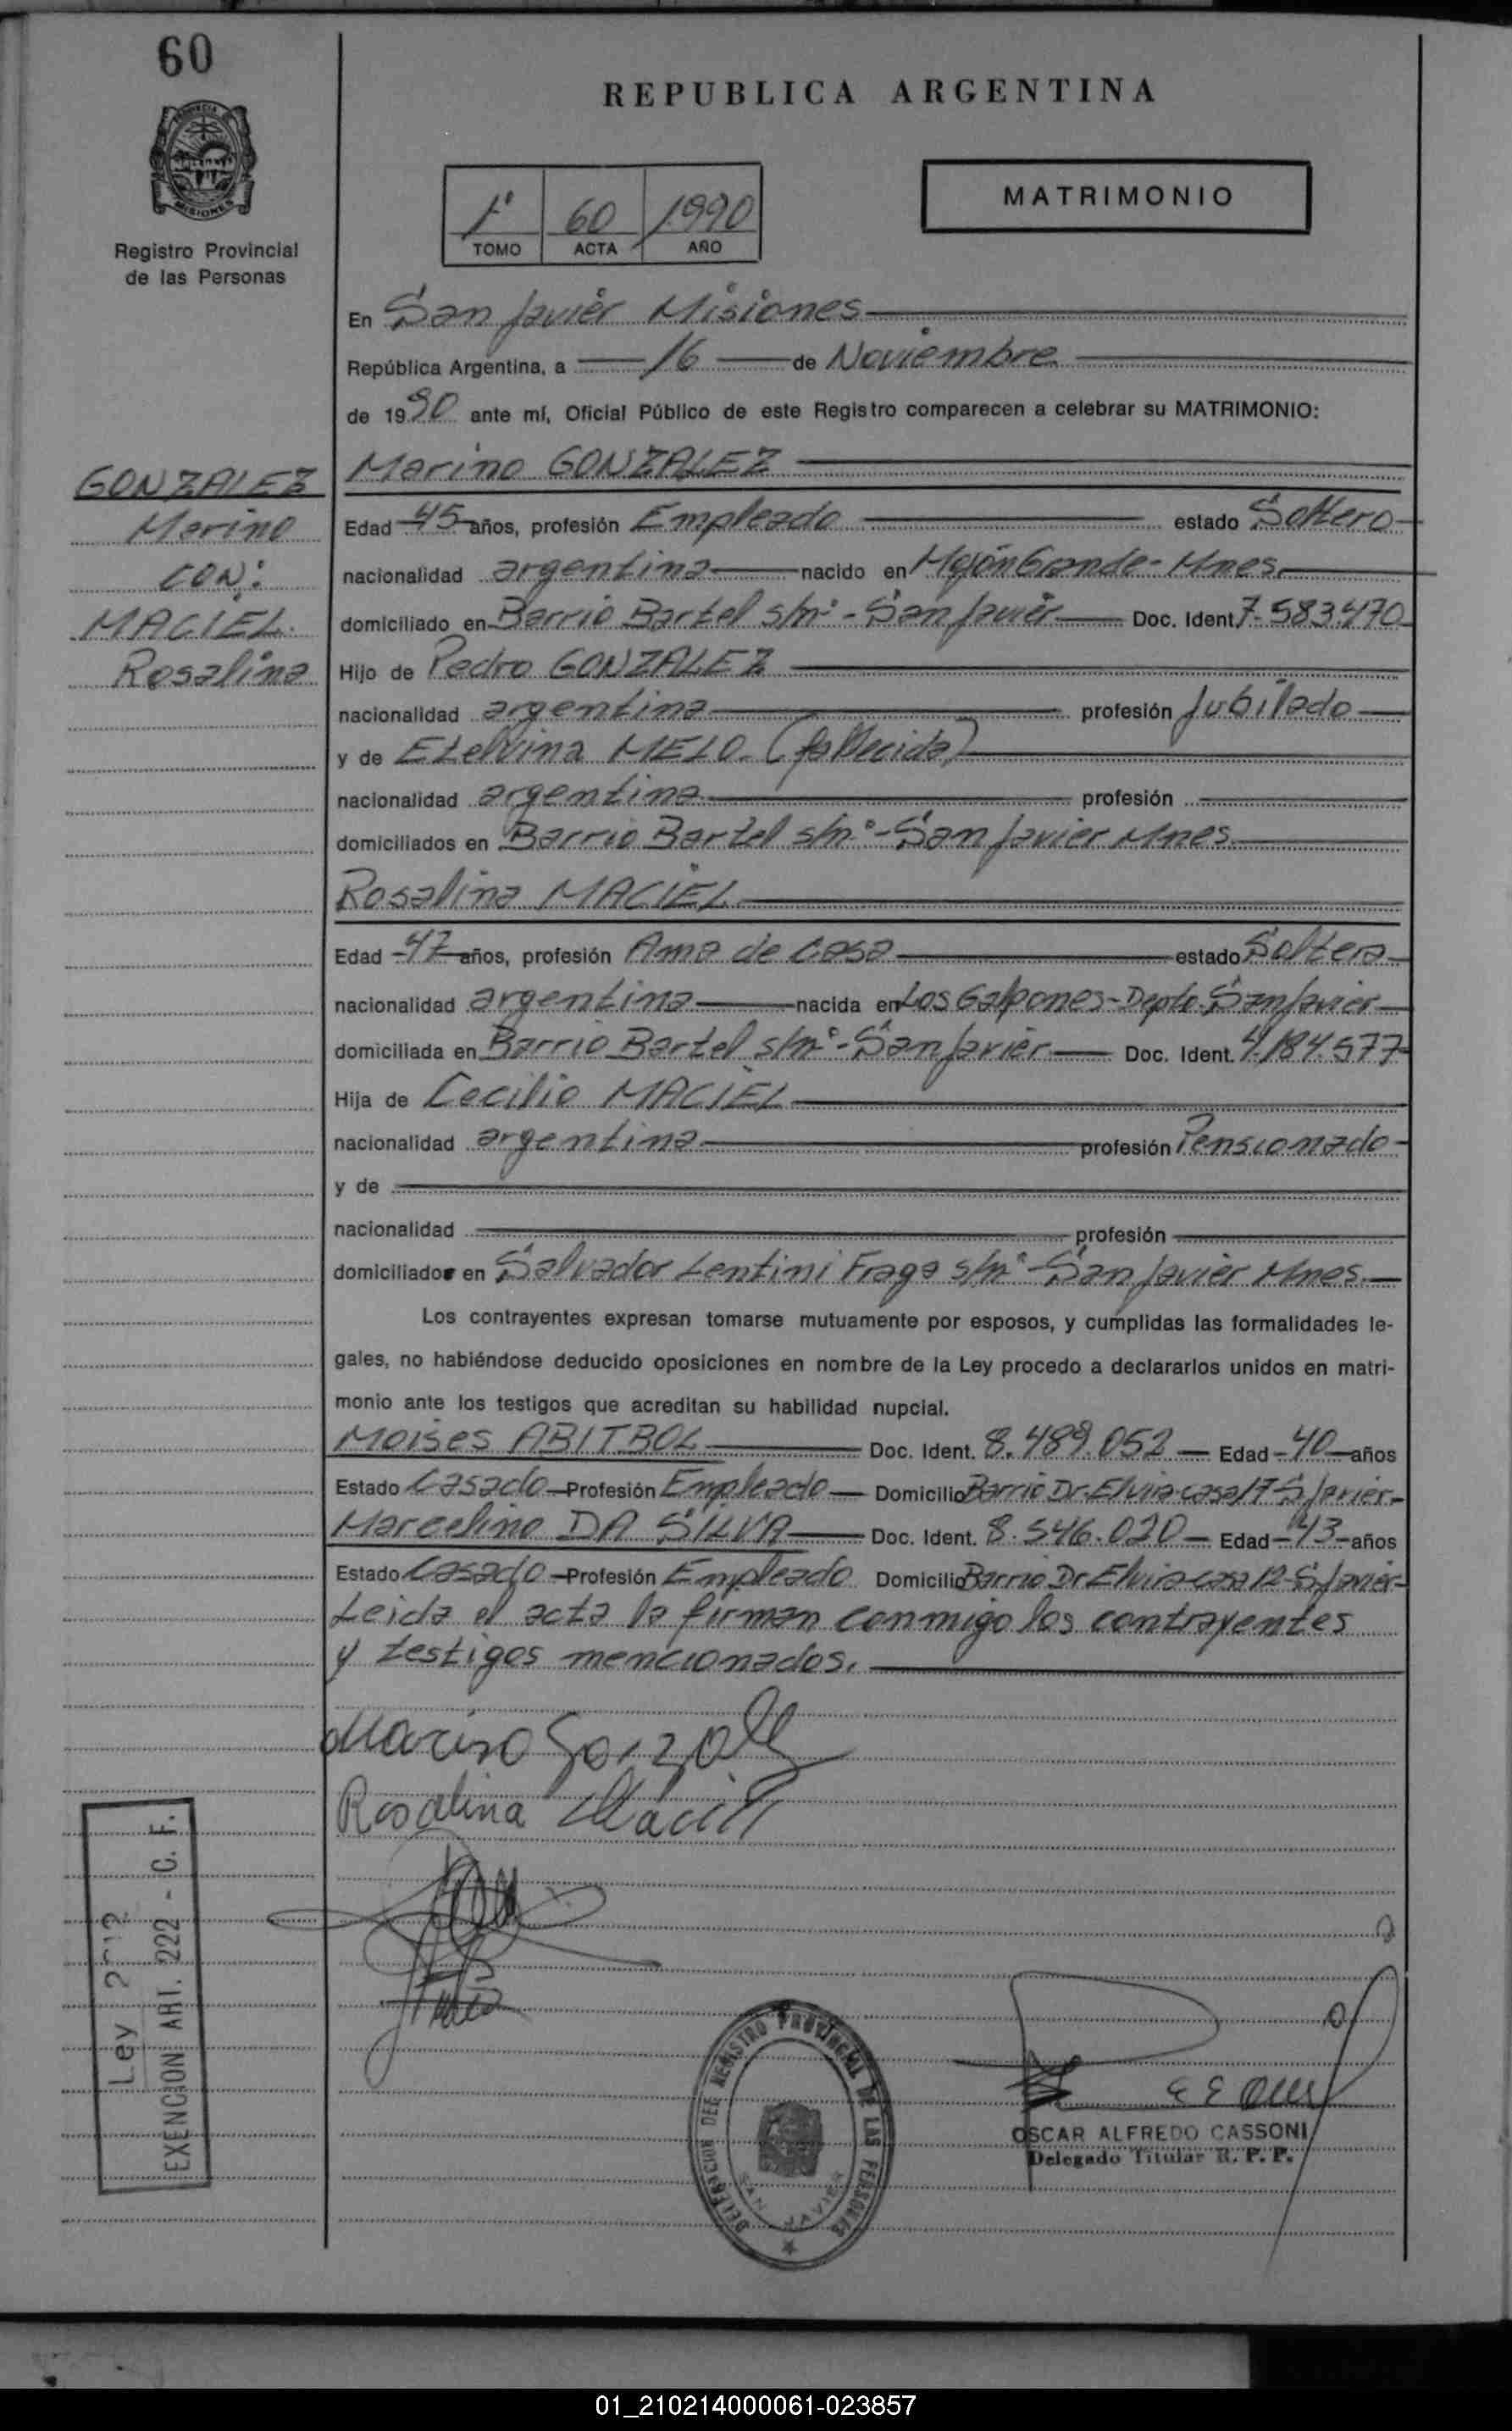 60
REPUBLICA ARGENTINA
PROVINCIA
MISIONES
Registro Provincial
de las Personas
1º 60 1990
TOMO ACTA AÑO
MATRIMONIO
En San Javier Misiones
República Argentina, a 16 de Noviembre
de 1990 ante mí, Oficial Público de este Registro comparecen a celebrar su MATRIMONIO:
GONZALEZ
Marino
CON:
MACIEL
Rosalina
Marino GONZALEZ
Edad 45 años, profesión Empleado estado Soltero
nacionalidad argentina nacido en Mojón Grande - Mnes.
domiciliado en Barrio Bartel s/nº - San Javier Doc. Ident. 7.583.470
Hijo de Pedro GONZALEZ
nacionalidad argentina profesión Jubilado
y de Etelvina MELO. (fallecida)
nacionalidad argentina profesión
domiciliados en Barrio Bartel s/nº - San Javier Mnes.
Rosalina MACIEL
Edad 47 años, profesión Ama de casa estado Soltera
nacionalidad argentina nacida en Los Galpones - Depto. San Javier
domiciliada en Barrio Bartel s/nº - San Javier Doc. Ident. 4.184.577
Hija de Cecilio MACIEL
nacionalidad argentina profesión Pensionado
y de
nacionalidad profesión
domiciliados en Salvador Lentini Fraga s/nº - San Javier Mnes.
Los contrayentes expresan tomarse mutuamente por esposos, y cumplidas las formalidades le-
gales, no habiéndose deducido oposiciones en nombre de la Ley procedo a declararlos unidos en matri-
monio ante los testigos que acreditan su habilidad nupcial.
Moises ABITBOL Doc. Ident. 8.489.052 Edad 40 años
Estado Casado Profesión Empleado Domicilio Barrio Dr. Elvira casa 17 S. Javier
Marcelino DA SILVA Doc. Ident. 8.546.020 Edad 43 años
Estado Casado Profesión Empleado Domicilio Barrio Dr Elvira casa 12 - S. Javier
Leida el acta la firman conmigo los contrayentes
y testigos mencionados.
Marino Gonzalez
Rosalina Maciel
Ley
EXENCION ART. 222 - C. F.
DELEGACION DEL REGISTRO PROVINCIAL DE LAS PERSONAS
SAN JAVIER
OSCAR ALFREDO CASSONI
Delegado Titular R. P. P.
01_210214000061-023857